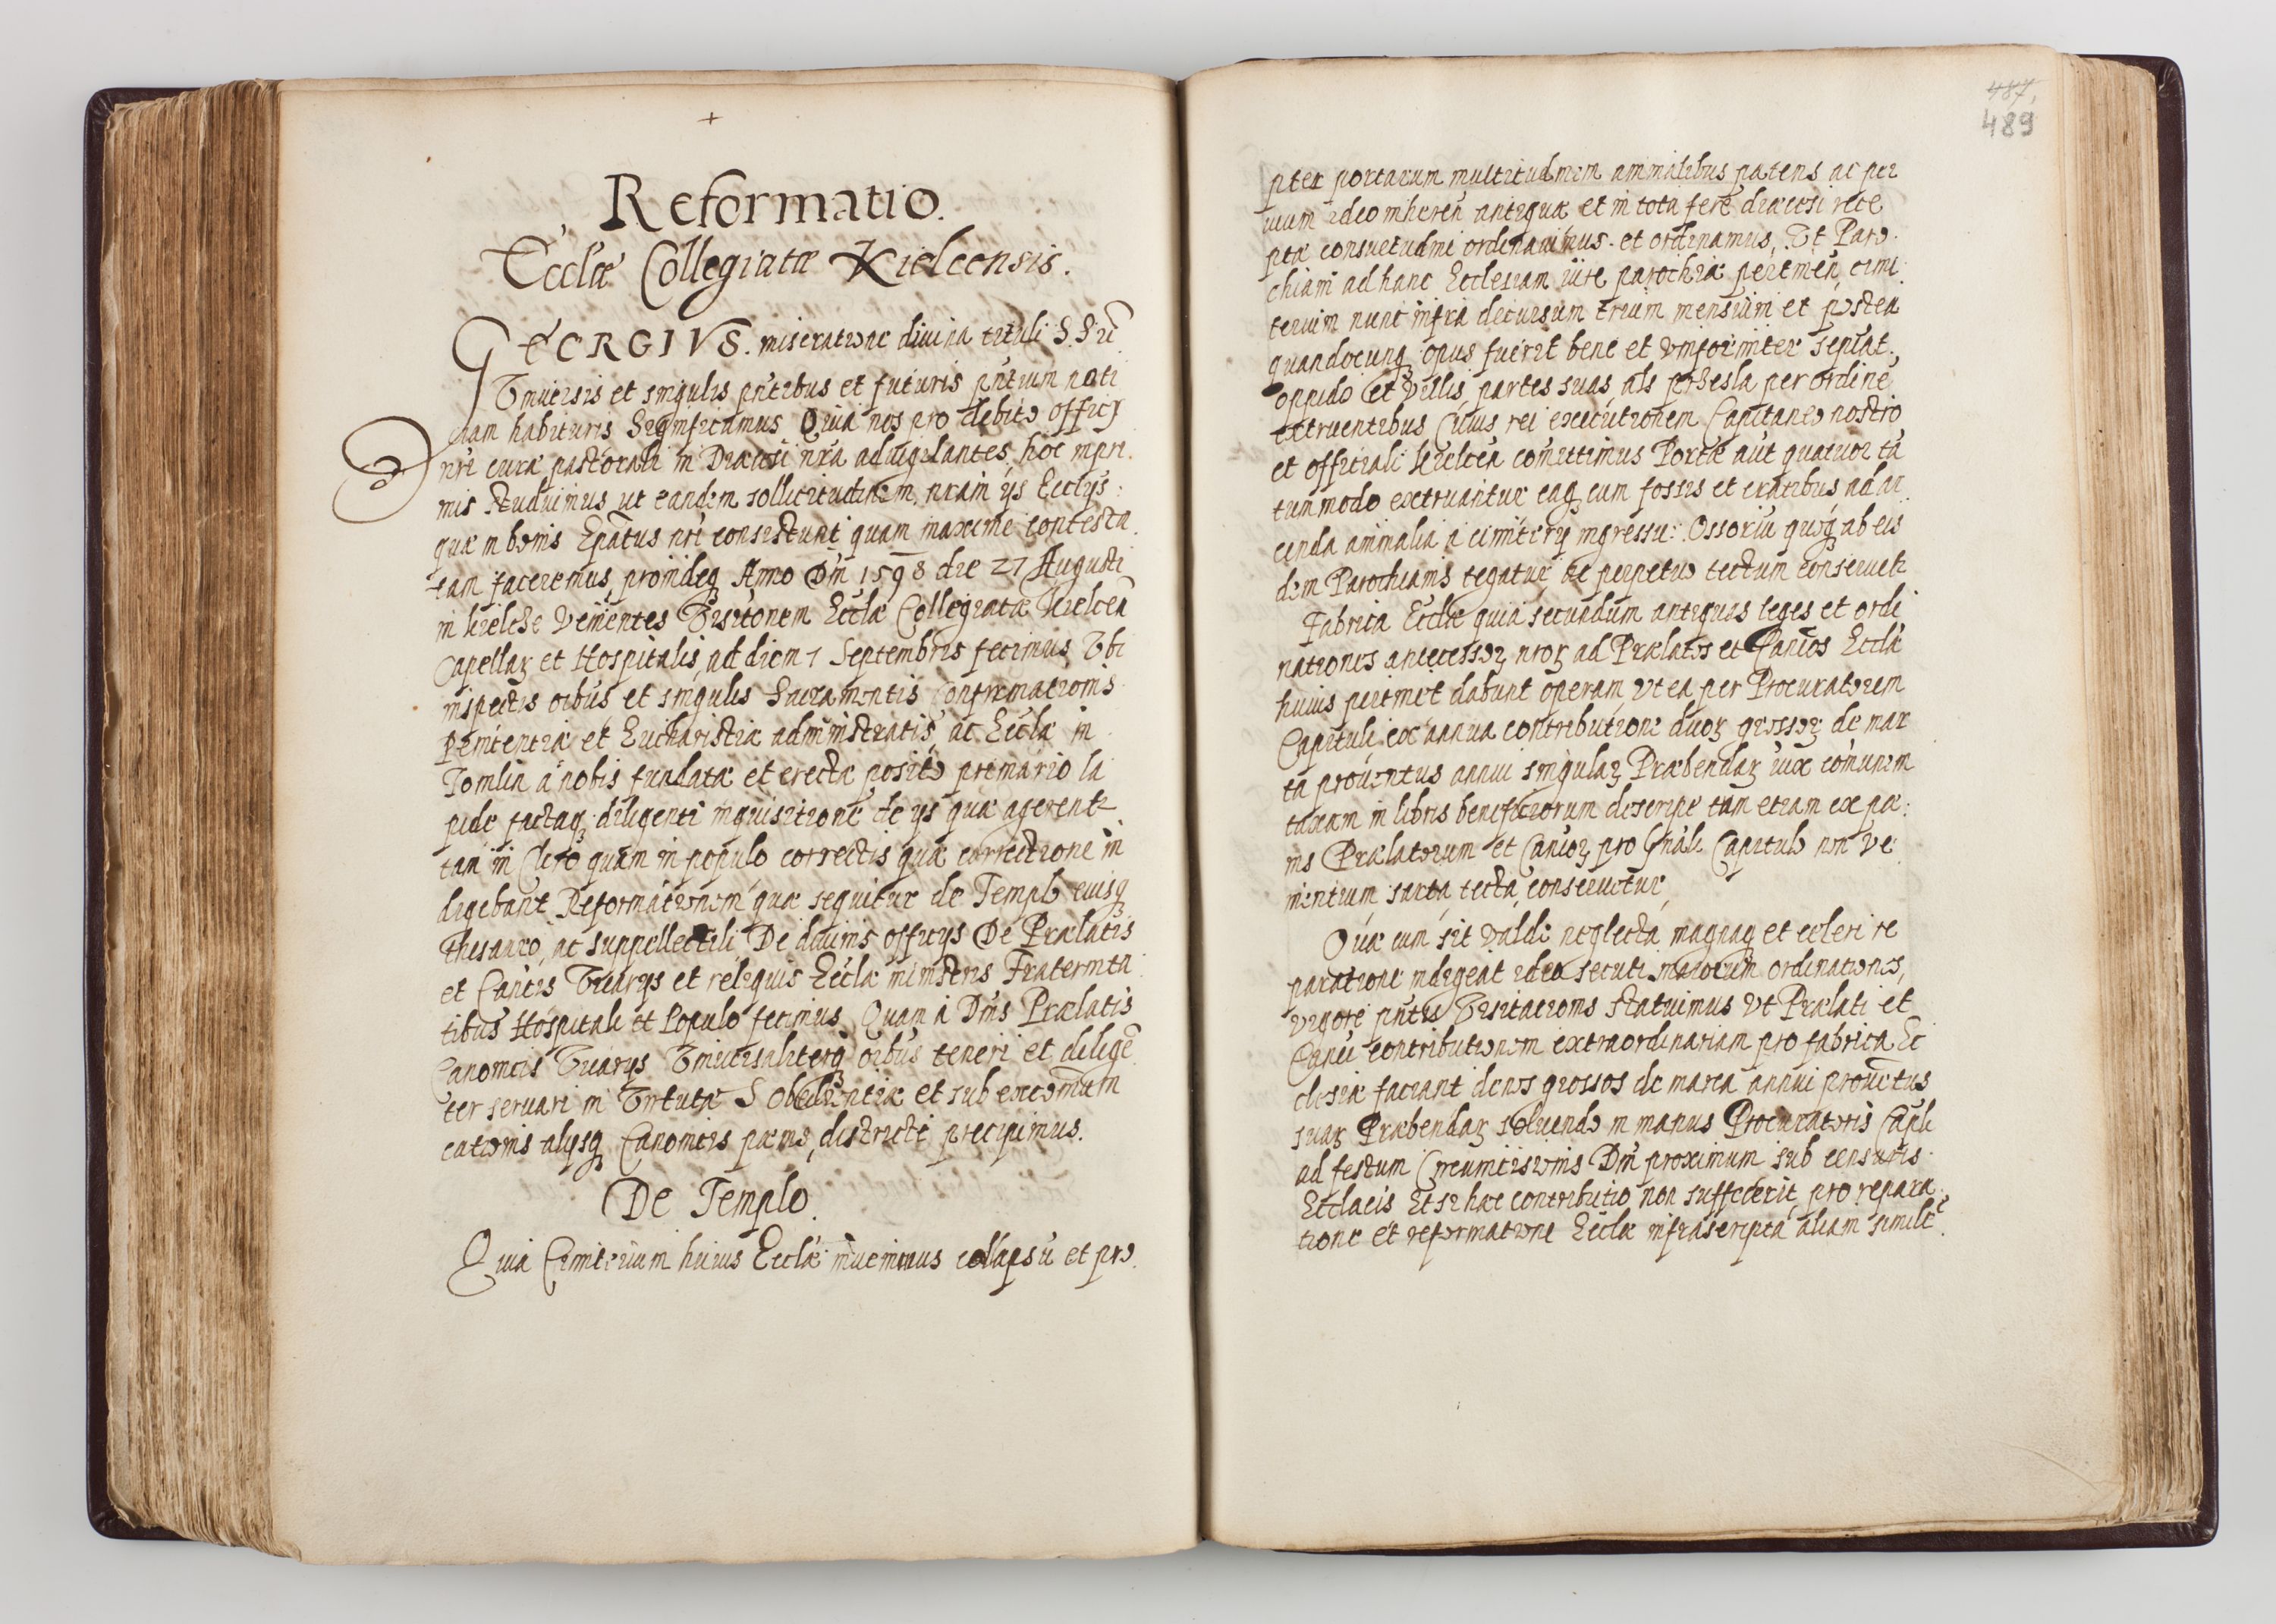 +
Reformatio.
Ecclæ Collegiatæ Kielcensis.
GEORGIVS. miseratione diuina tituli S. Sixti
Vniuersis et singulis pñtibus et futuris pñtium noti
ciam habituris Significamus Quia nos pro debito officij
nri cura pastorali in Diœcesi nra aduigilantes, hoc inpri.
mis studuimus ut eandem sollicitudinem nram ijs Ecclijs:
quæ in bonis Epatus nri consistunt quam maxime contesta
tam faceremus, proindeq Anno Dñi 1598 die 27 Augusti
in Kielche venientes Visitõnem Ecclæ Collegiatæ Kielcen
Capellaꝝ et Hospitalis, ad diem 1 Septembris fecimus, Vbi
inspectis oibus et singulis Sacramentis Confirmationis
Pœnitentiæ et Eucharistiæ administratis, ac Eccla in
Tomlin a nobis fundata et erecta, posito primario la
pide factaq diligenti inquisitione de ijs quæ agerentr
tam in Clero quam in populo correctis quæ correctione in
digebant Reformationem quæ sequitur de Templo eiusq
Thesauro, ac suppellectili De diuinis officijs De Prælatis
et Canõis Vicarijs et reliquis Ecclæ ministris Fraternita
tibus Hospitali et Populo fecimus. Quam à Dñis Prælatis
Canonicis Vicarijs Vniuersaliterq oibus teneri et diligẽ
ter seruari in Virtute S Obedientiæ et sub excõmuni
cationis alijsq Canonicis pœnis, districte precipimus.
De Templo.
Quia Cimiterium huius Ecclæ inuenimus collapsũ et pro.
487,
489
pter portarum multitudinem animalibus patens ac per
uium ideo inhæren antiquæ et in tota fere diœcesi rece
ptæ consuetudini ordinauimus. et ordinamus, Vt Paro.
chiani ad hanc Ecclesiam iure parochiæ pertinen, cimi.
terium nunc infra decursum trium mensium et postea
quandocunq opus fuerit bene et vniformiter sepiat.
oppido et villis, partes suas, als przesla per ordinẽ
extruentibus Cuius rei executionem Capitaneo nostro
et officiali Kielcen comittimus Portæ aut quatuor tã
tummodo extruantur eæq cum fossis et cratibus ad ar
cenda animalia à cimiterij ingressu: Ossoriũ quoq ab eis
dem Parochianis tegatur, ac perpetuo tectum conseruetr
Fabrica Ecclæ quia secundum antiquas leges et ordi
nationes antecessoꝝ nroꝝ ad Prælatos et Canicos Ecclæ
huius pertinet dabunt operam, vt ea per Procuratorem
Capituli ex annua contributione duoꝝ grossoꝝ de mar
ca prouentus annui singulaꝝ Præbendaꝝ iux comunem
taxam in libris beneficiorum descriptæ tam etiam ex pœ:
nis Prælatorum et Canicoꝝ pro Gnali Capitulo non ve
nientium, sarta, tecta, conseruetur,
Quæ cum sit valde neglecta, magnaq et celeri re
paratione indigeat ideo secuti maiorum ordinationes,
vigore pñtis Visitationis statuimus Vt Prælati et
Canici contributionem extraordinariam pro fabrica Ec
clesiæ faciant denos grossos de marca annui prouetus
suaꝝ Præbendaꝝ soluendo in manus Procuratoris Capli
ad festum Circumcisionis Dñi proximum sub censuris
Ecclacis Et si hæc contributio non suffecerit, pro repara.
tione et reformatione Ecclæ infrascripta aliam similẽ.